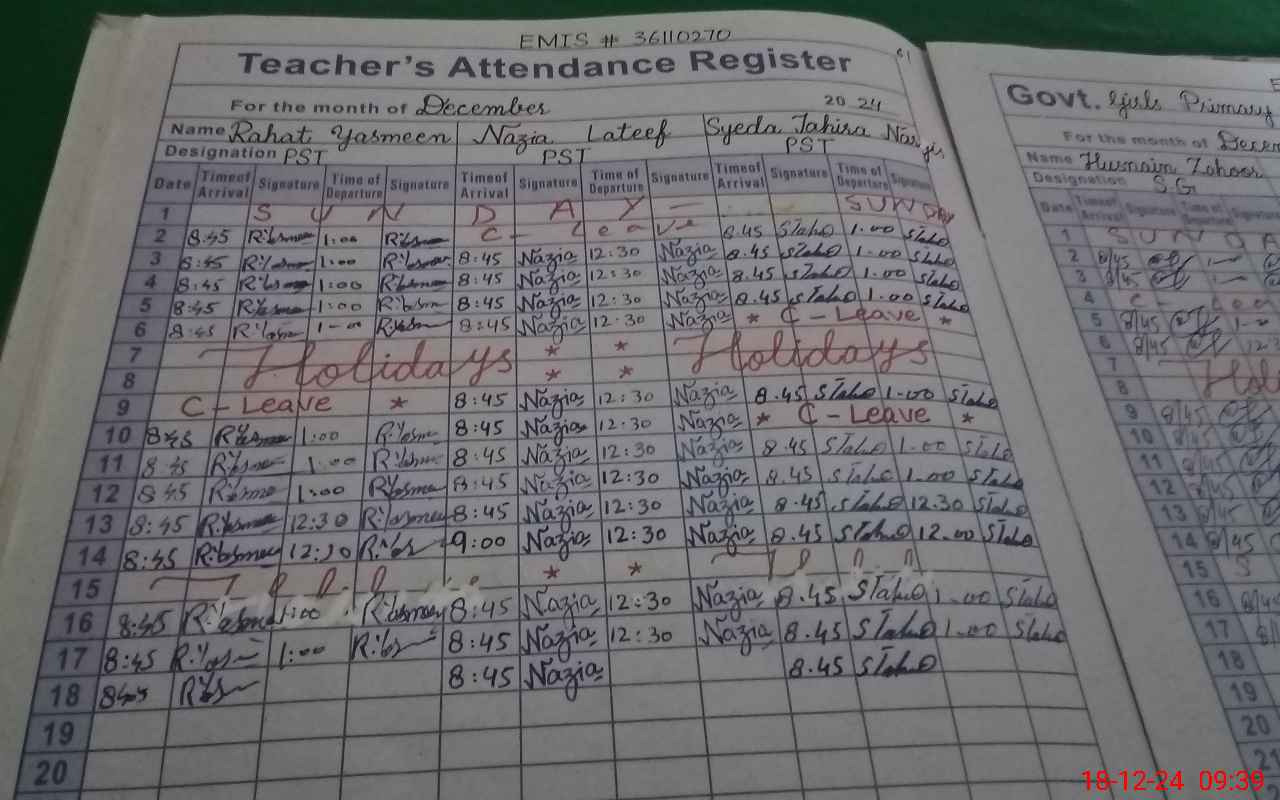 EMIS # 36110270
61
Teacher's Attendance Register
For the month of December 2024
Name Rahat Yasmeen Nazia Lateef Syeda Tahira Narjis
Designation PST PST PST
Date Time of Arrival Signature Time of Departure Signature Time of Arrival Signature Time of Departure Signature Time of Arrival Signature Time of Departure Signature
1 S U N D A Y — SUNDAY
2 8:45 R.Yasmeen 1:00 R.Yasmeen C - Leave 8.45 STaho 1.00 STaho
3 8:45 R.Yasmeen 1:00 R.Yasmeen 8:45 Nazia 12:30 Nazia 8.45 STaho 1.00 STaho
4 8:45 R.Yasmeen 1:00 R.Yasmeen 8:45 Nazia 12:30 Nazia 8.45 STaho 1.00 STaho
5 8:45 R.Yasmeen 1:00 R.Yasmeen 8:45 Nazia 12:30 Nazia 8.45 STaho 1.00 STaho
6 8:45 1-00 8:45 Nazia 12:30 Nazia * C - Leave *
7 Holidays * * Holidays
8 * *
9 C - Leave * 8:45 Nazia 12:30 Nazia 8.45 STaho 1.00 STaho
10 8:45 1:00 8:45 Nazia 12:30 Nazia * C - Leave *
11 8:45 1:00 8:45 Nazia 12:30 Nazia 8.45 STaho 1.00 STaho
12 8:45 1:00 8:45 Nazia 12:30 Nazia 8.45 STaho 1.00 STaho
13 8:45 12:30 8:45 Nazia 12:30 Nazia 8.45 STaho 12.30 STaho
14 8:45 12:30 9:00 Nazia 12:30 Nazia 8.45 STaho 12.00 STaho
15 * *
16 8:45 1:00 8:45 Nazia 12:30 Nazia 8.45 STaho 1.00 STaho
17 8:45 1:00 8:45 Nazia 12:30 Nazia 8.45 STaho 1.00 STaho
18 8:45 8:45 Nazia 8.45 STaho
19
20
Govt. Girls Primary
For the month of Decem
Name Husnain Zahoor
Designation S.G
Date Time of Arrival Signature Time of Departure Signature
1 S U N D A
2 8/45
3 8/45
4 C - Lea
5 8/45
6 8/45
7 Hol
8
9 8/45
10 8/45
11 8/45
12 8/45
13 8/45
14 8/45
15 S
16 8/45
17
18
19
20
21
18-12-24 09:39